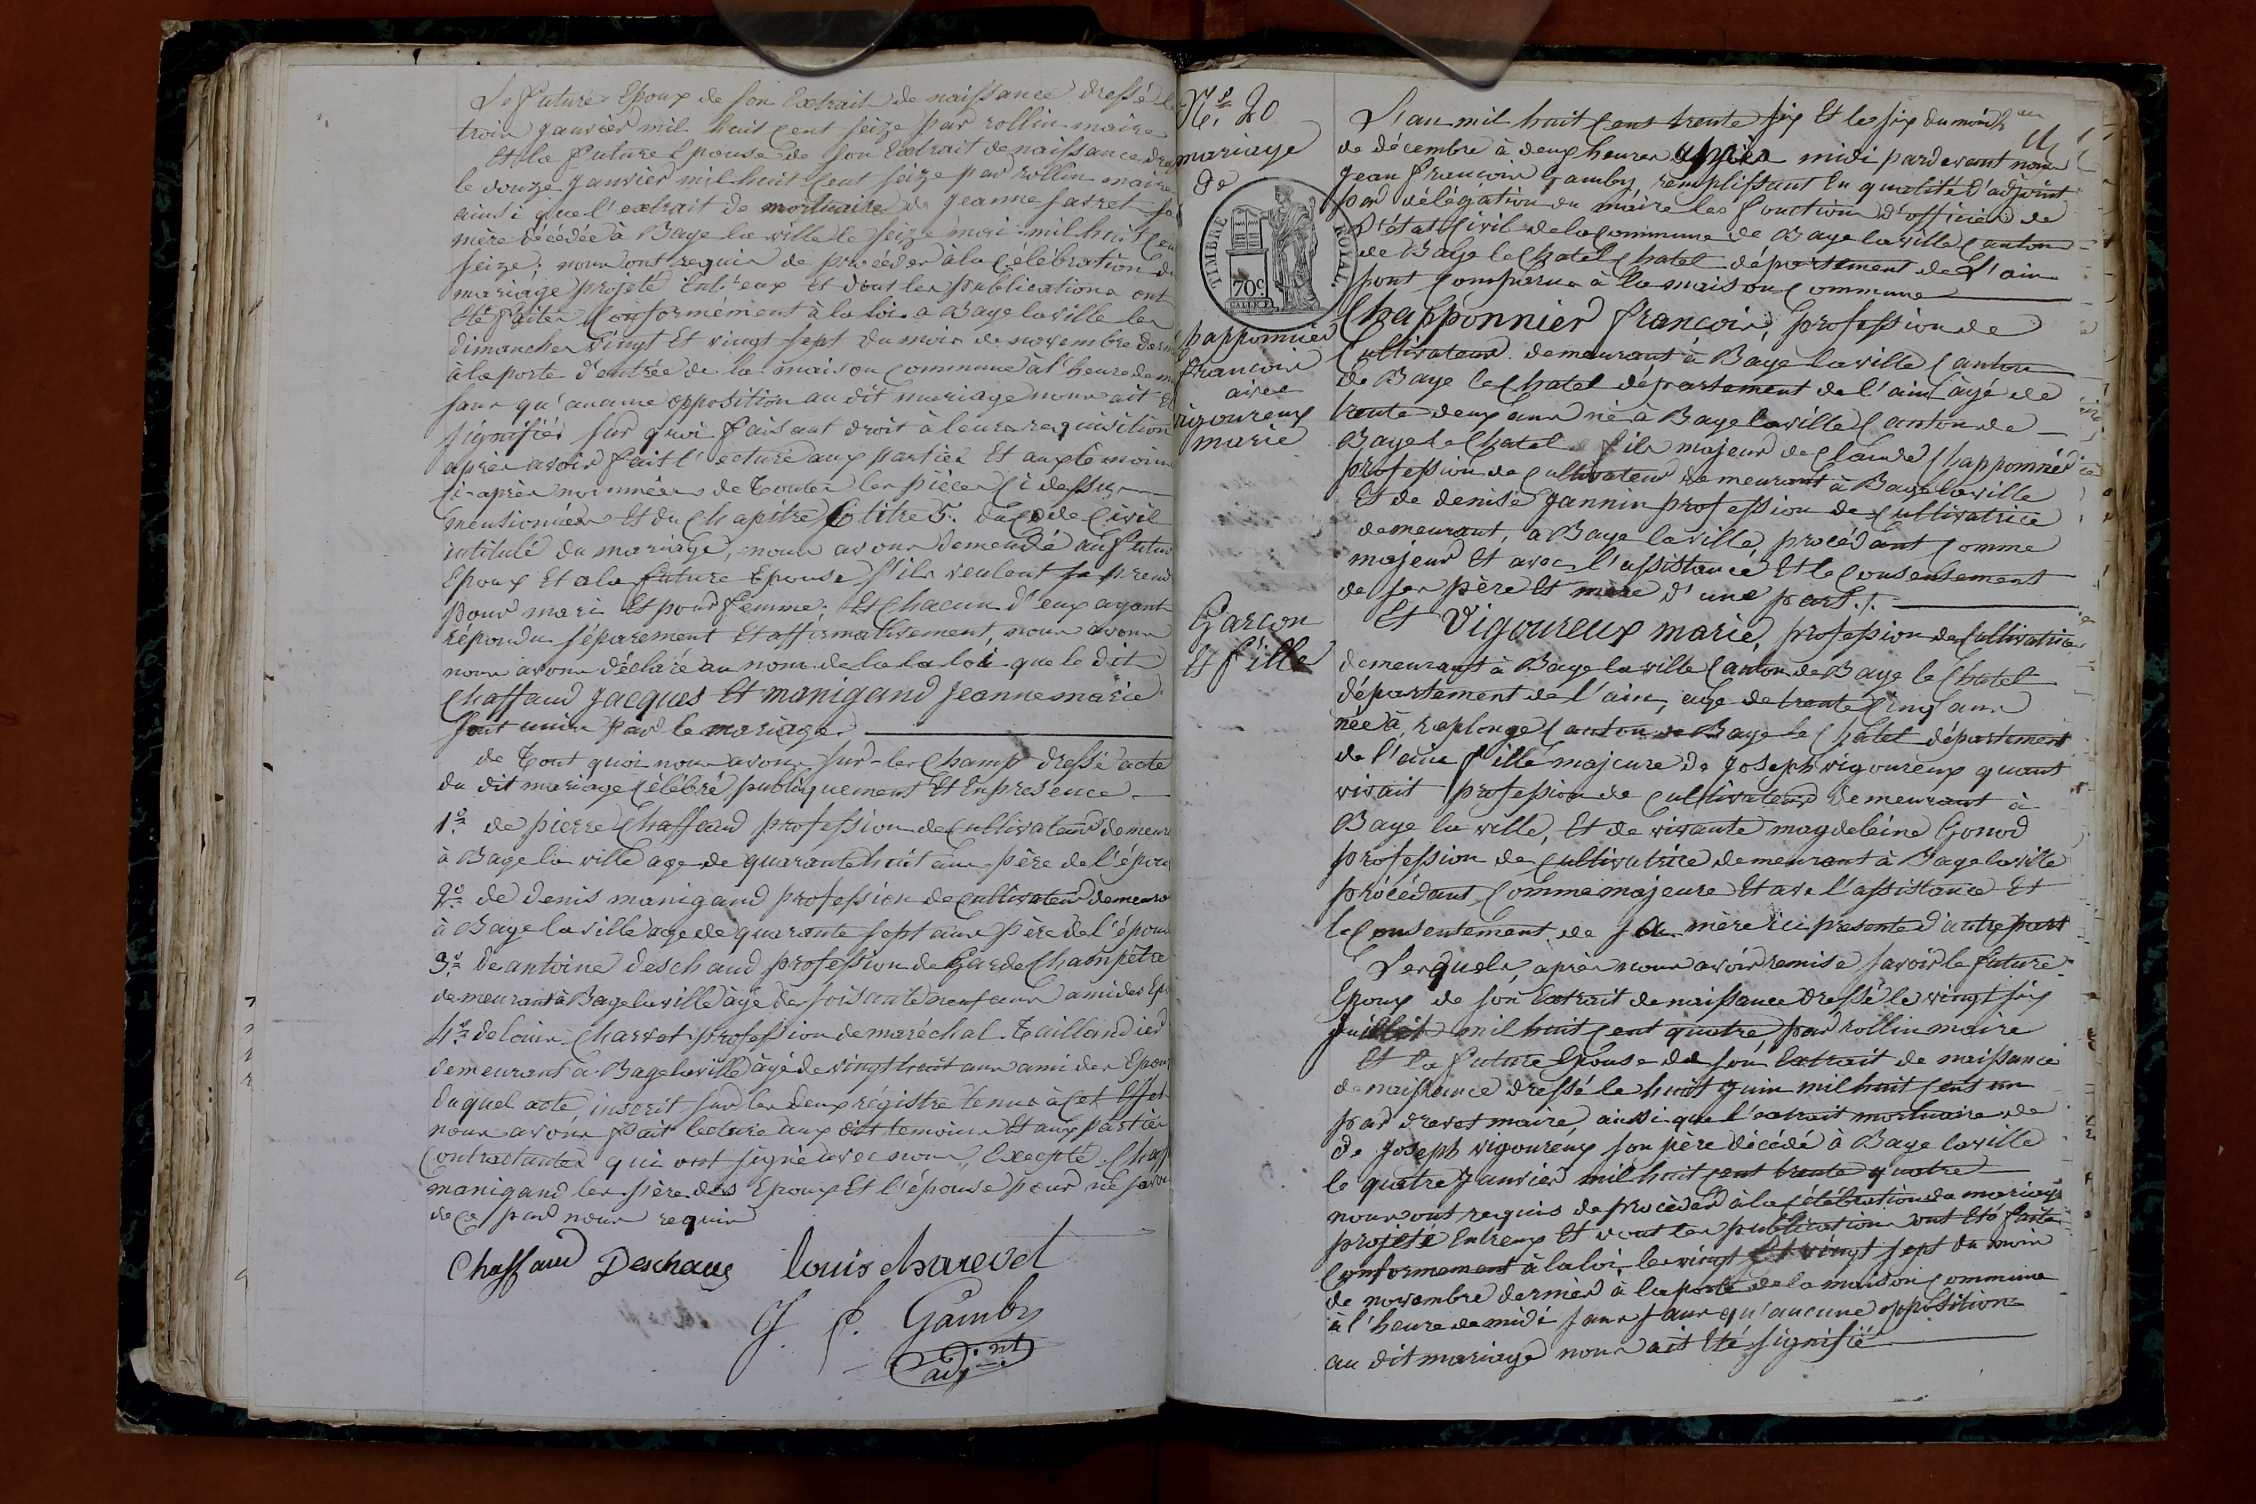 Le future Epoux de son Extrait de naissance dressé le
trois janvier mil huit cent seize par rollin maire
Et la future Epouse de son Extrait de naissance
le douze janvier mil huit cent seize par rollin maire
ainsi que l'extrait de mortuaire de jeanne favret sa
mère décédée à Bage la ville le seize mai mil huit cent
seize; nous ont requis de procéder à la Célébration du
mariage projeté Entr'eux Et dont les publications ont
été faites Conformément à la loi a Bage la ville les
dimanches vingt Et vingt sept du mois de novembre dernier
à la porte d'entrée de la maison Commune à l'heure de
sans qu'aucune opposition au dit mariage nous ait
signifiée sur quoi faisant droit à leurs requisition
après avoir fait l'ecture aux parties Et aux témoins
si-après nommées de toutes les pièces Ci dessus
mentionnées Et du Chapitre 6 titre 5. du Code Civil
intitulé du mariage, nous avons demendé au futur
Epoux Et a la future Epouse s'ils veulent se prend
pour mari Et pour femme; Et Chacun d'eux ayant
répondu séparement Et affirmativement, nous avons
nous avons déclaré au nom de la la loi que le dit
Chaffaud Jacques Et manigand Jeanne marie
sont unis par le mariage
de Tout quoi nous avons sur-les Champ dressé acte
du dit mariage Célébré publiquement Et En presence
1° de pierre Chaffaud profession de Cultivateur demeura
à Bage la ville age de quarante huit ans père de l'épou
2° de Denis manigand profession de Cultivateur demeura
à Bage la ville age de quarante sept ans père de l'épous
3° de antoine deschaud profession de Garde Champêtre
demeurant à Bage la ville âgé de soisante neuf ans ami des Ep
4° de louis Charvet profession de maréchal-Taillandier
demeurant à Bage la ville âgé de vingt huit ans ami des Epou
duquel acte, inscrit sur les deux régistre tenus à Cet Effet
nous avons fait lecture aux dit temoins Et aux parties
Contractantes qui ont signé avec nous, Excepté Chaf
manigand les père des Epoux Et l'épouse pour ne savoi
de ce par nous requis
Chaffaud Deschaux louis charevet
J. f. Gamby
adj.nt
N.° 20
mariage
de
TIMBRE ROYAL
70c
happonnier
francois
avec
vigoureux
marie
Garçon
4 fille
L'an mil huit Cent trente six Et le six du mois
de décembre à deux heures après midi pardevant nous
Jean francois Gamby, remplissant En qualité d'adjoint
par délégation du maire les fonction d'officier de
l'état Civil de la Commune de Bage la ville Canton
de Bage le Chatel Chatel département de L'ain
sont Comparus à la maison Commune
Chapponnier francois, profession de
Cultivateur demeurant à Bage la ville Canton
de Bage le Chatel département de l'ain âgé de
trente deux ans né à Bage la ville Canton de
Bage le Chatel fils majeur de Claude Chapponnier
profession de Cultivateur demeurant à Bage la ville
Et de denise Jannin profession de Cultivatrice
demeurant, à Bage la ville, procédant Comme
majeur Et avec l'assistance Et le Consentement
de ses père Et mère d'une part.
Et Vigoureux marie, profession de Cultivatrice
demeurant à Bage la ville Canton de Bage le Chatel
département de l'ain, age de trente Cinq ans
née à replonge Canton de Bage le Chatel département
de l'ain fille majeure de Joseph vigoureux quant
vivait profession de Cultivateur demeurant à
Bage la ville, Et de vivante magdeleine Gonod
profession de Cultivatrice demeurant à Bage la ville
procédant Comme majeure Et ave l'assistance Et
le Consentement de sa mère ici presente d'autre part
Lesquels, après nous avoir remise savoir le future
Epoux de son Extrait de naissance dressé le vingt six
juillet mil huit Cent quatre, par rollin maire
Et la future Epouse de son Extrait de naissance
de naissance dressé le huit juin mil huit Cent un
par drevet maire, ainsi que l'extrait mortuaire de
de Joseph vigoureux son père décédé à Bage la ville
le quatre Janvier mil huit Cent trente quatre
nous ont requis de procéder à la Célébration du mariage
projeté Entreux Et dont les publication ont Eté faites
Conformement à la loi, les vingt Et vingt sept du mois
de novembre dernier à la porte de la maison Commune
à l'heure de midi sans sans qu'aucune opposition
au dit mariage nous ait Eté signifié